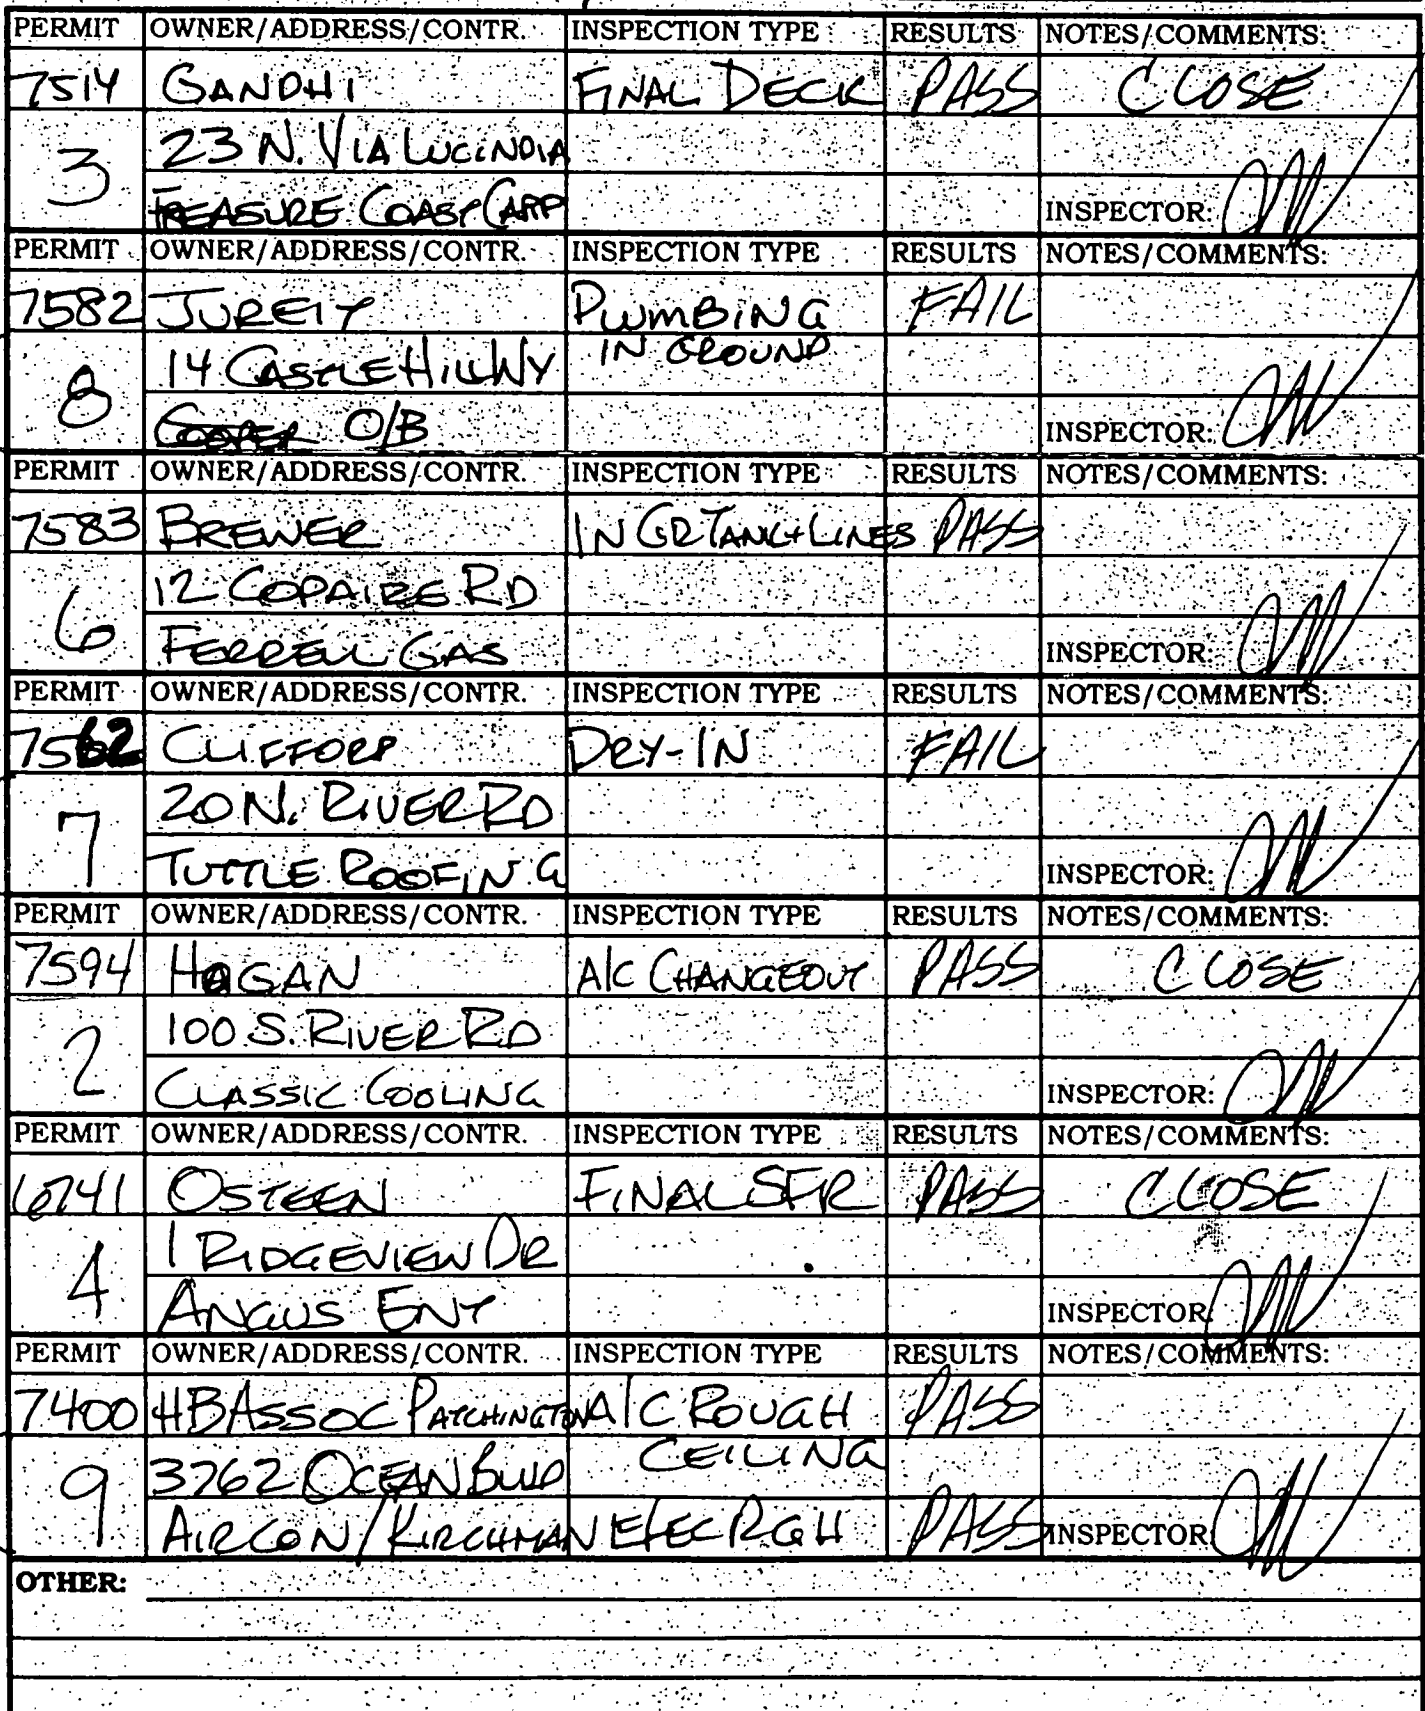 PERMIT OWNER/ADDRESS/CONTR. INSPECTION TYPE RESULTS NOTES/COMMENTS:
7514 GANDHI FINAL DECK PASS CLOSE
3 23 N. VIA LUCINDIA
TREASURE COAST CARP INSPECTOR:
PERMIT OWNER/ADDRESS/CONTR. INSPECTION TYPE RESULTS NOTES/COMMENTS:
7582 JUREIT PLUMBING FAIL
8 14 CASTLE HILL WY IN GROUND
COOPER O/B INSPECTOR:
PERMIT OWNER/ADDRESS/CONTR. INSPECTION TYPE RESULTS NOTES/COMMENTS:
7583 BREWER IN GR TANK+LINES PASS
6 12 COPAIRE RD
FERRELL GAS INSPECTOR:
PERMIT OWNER/ADDRESS/CONTR. INSPECTION TYPE RESULTS NOTES/COMMENTS:
7562 CLIFFORD DRY-IN FAIL
7 20 N. RIVER RD
TUTTLE ROOFING INSPECTOR:
PERMIT OWNER/ADDRESS/CONTR. INSPECTION TYPE RESULTS NOTES/COMMENTS:
7594 HOGAN A/C CHANGEOUT PASS CLOSE
2 100 S. RIVER RD
CLASSIC COOLING INSPECTOR:
PERMIT OWNER/ADDRESS/CONTR. INSPECTION TYPE RESULTS NOTES/COMMENTS:
6741 OSTEEN FINAL SFR PASS CLOSE
4 1 RIDGEVIEW DR
ANGUS ENT INSPECTOR:
PERMIT OWNER/ADDRESS/CONTR. INSPECTION TYPE RESULTS NOTES/COMMENTS:
7400 HB ASSOC PATCHINGTON A/C ROUGH PASS
9 3762 OCEAN BLVD CEILING
AIRCON/KIRCHMAN ELEC RGH PASS INSPECTOR:
OTHER: